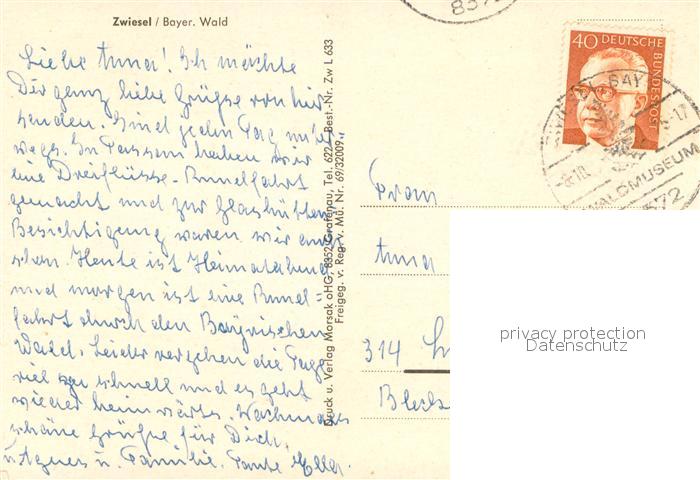 Zwiesel / Bayer. Wald
Liebe Anna! Ich möchte
Dir ganz liebe Grüsse von hir
senden. Sind jeden Tag unter
wegs. In Passau haben wir
eine Dreiflüsse-Rundfahrt
gemacht und zur Glashütten
Besichtigung waren wir auch
schon. Heute ist Heimatabend
und morgen ist eine Rund=
fahrt durch den Bayrischen
Wald. Leider vergehen die Tage
viel zu schnell und es geht
wieder heimwärts. Nochmals
schöne Grüsse für Dich,
Agnes u. Familie. Tante Ella.
Druck u. Verlag Morsak oHG, 8352 Grafenau, Tel. 622 Best.-Nr. Zw L 633
Freigeg. v. Reg. v. Mü. Nr. 69/32009
8372
40 DEUTSCHE
BUNDESPOST
ZWIESEL, BAY
-17
WALDMUSEUM
8372
Frau
Anna
314
privacy protection
Datenschutz